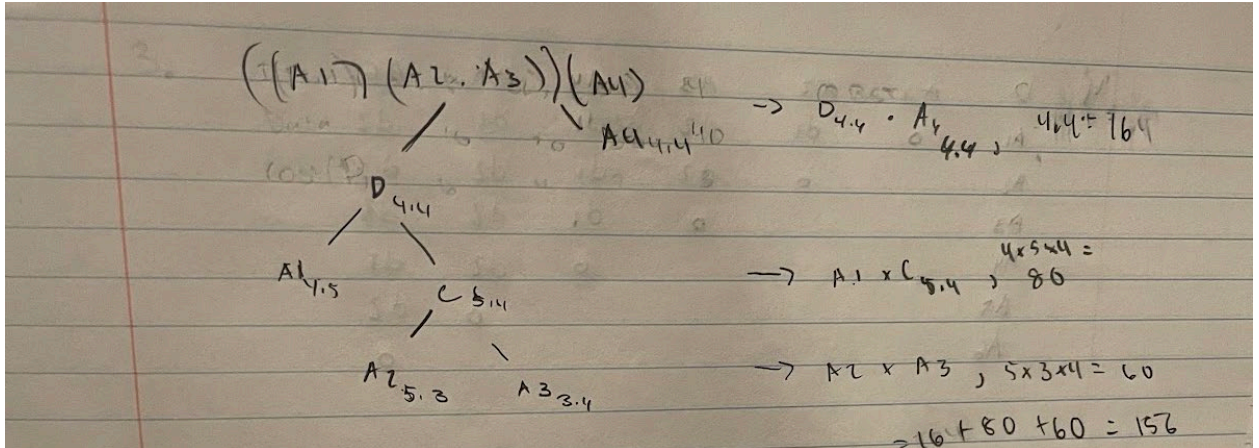 ((A1) (A2 . A3)) (A4)
A4 4.4
→ D4.4 . A4 4.4 , 4.4 = 16
D 4.4
A1 4.5
C 5.4
→ A1 x C 5.4 , 4x5x4 = 80
A2 5.3
A3 3.4
→ A2 x A3 , 5x3x4 = 60
= 16 + 80 + 60 = 156